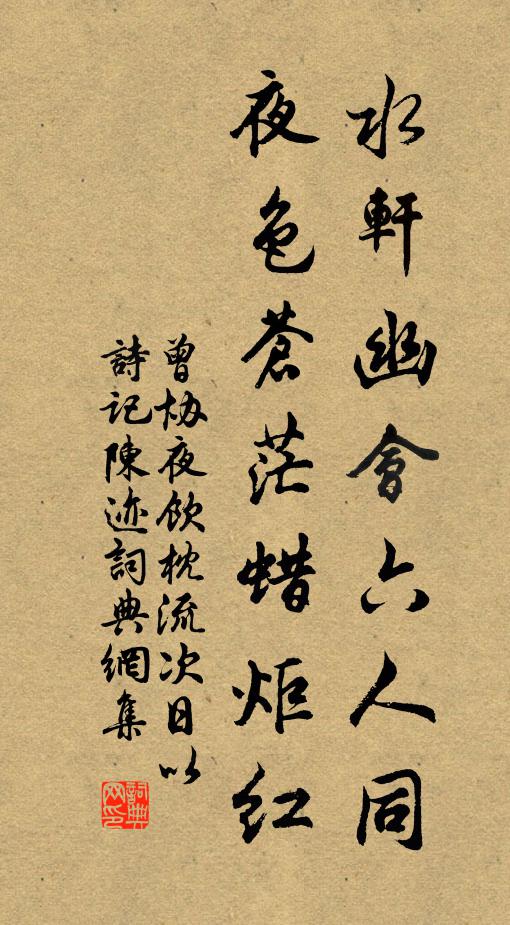 水軒幽會六人同
夜色蒼茫蜡炬红
曾协夜飲枕流次日以
詩记陳迹詞典網集
詞典网印